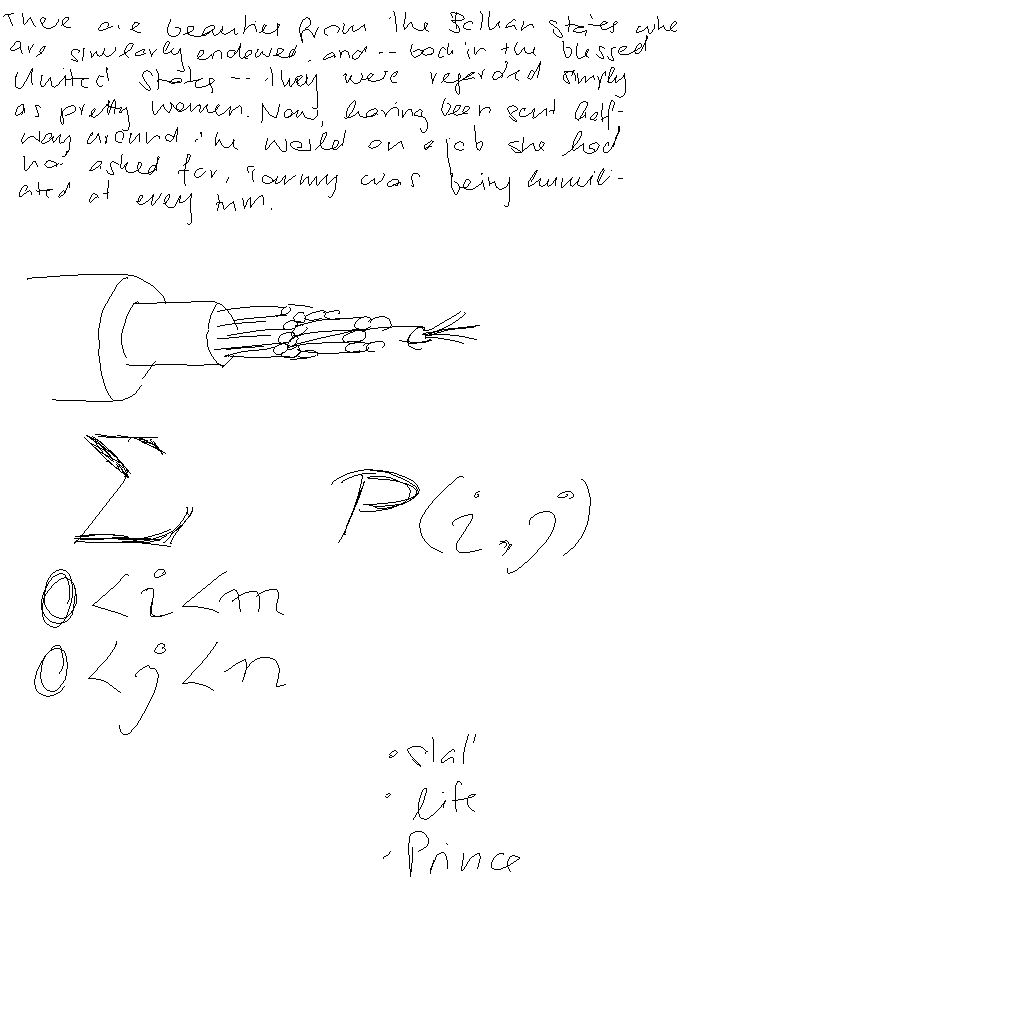 There are beauties from the Balkan States who
are similarly endowed, and -- back in the blessed
United States -- they were regarded simply
as pretty women. Now, having been sent half-
way around the world on a job she had
not asked for, Tammy was being humili-
ated at every turn.
Σ P(i,j)
0<i<m
0<j<n
• life
• Prince